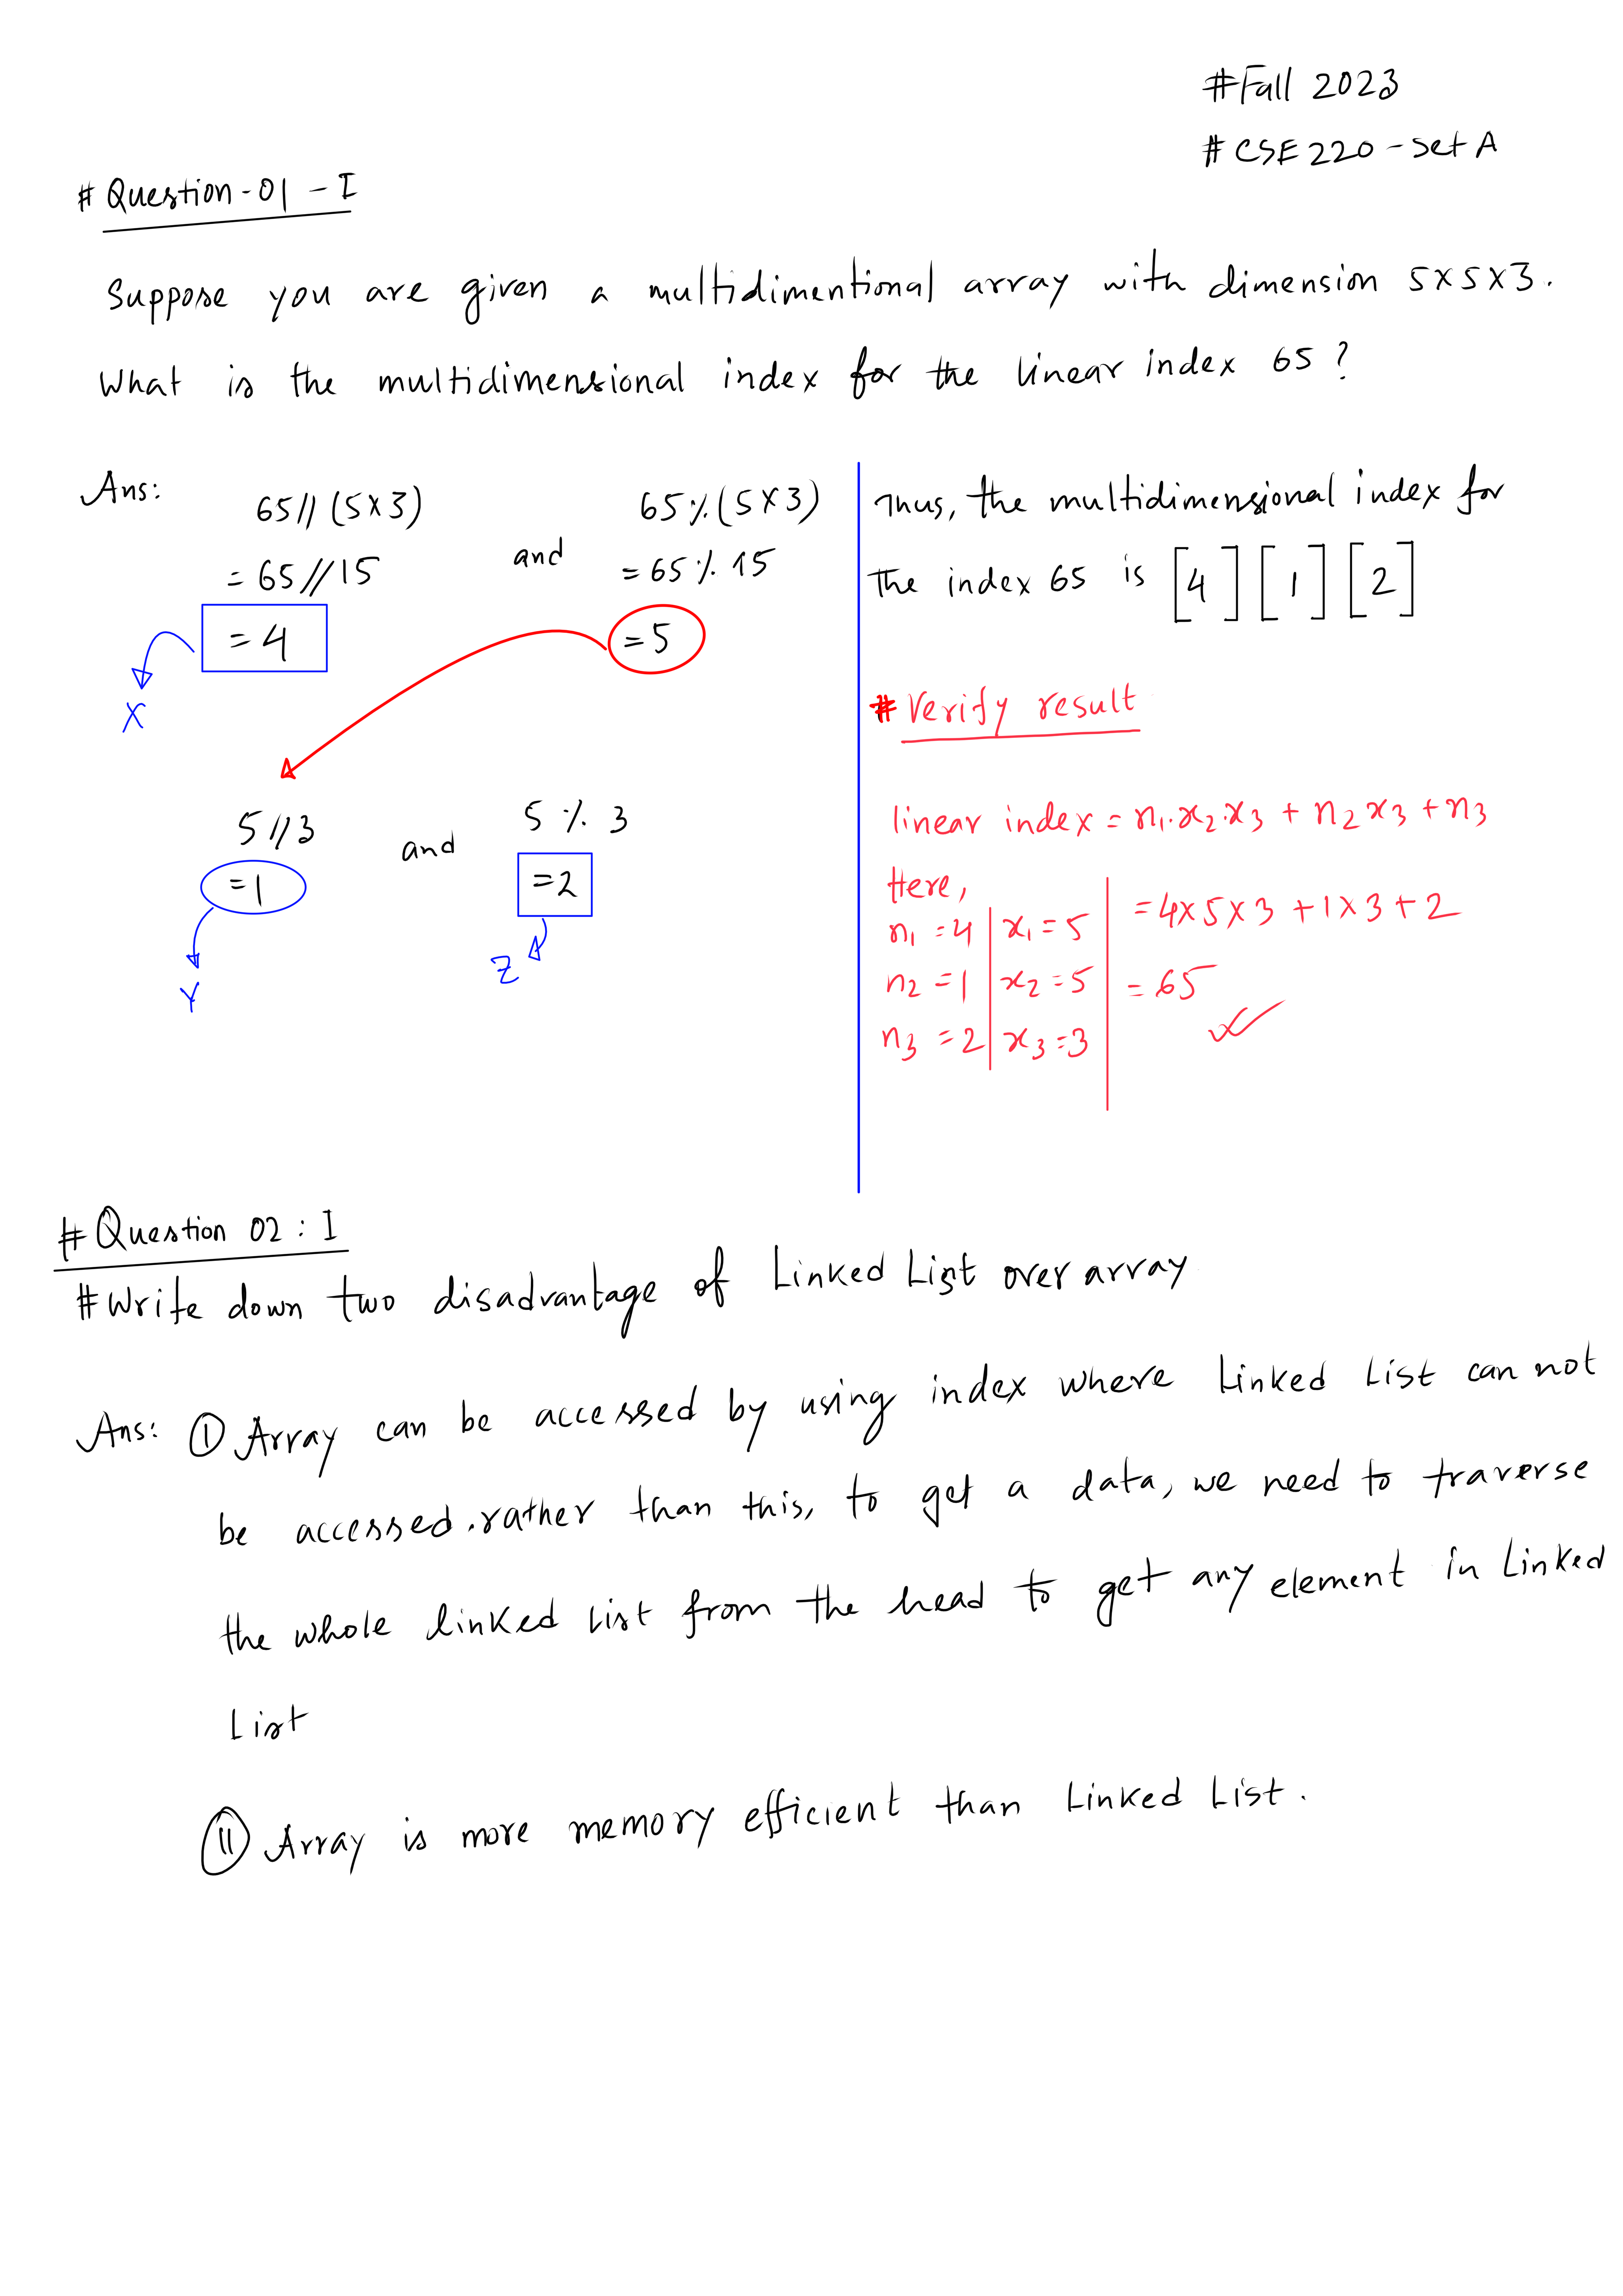 #Fall 2023
# CSE220 - Set A
# Question-01 - I
Suppose you are given a multidimentional array with dimension 5x5x3.
What is the multidimensional index for the linear index 65?
Ans:
65//(5x3)
= 65//15
= 4
X
and
65%(5x3)
= 65%15
= 5
5//3
= 1
Y
and
5 % 3
= 2
Z
Thus, the multidimensional index for
The index 65 is [4] [1] [2]
# Verify result
linear index = n₁.x₂.x₃ + n₂x₃ + n₃
Here,
n₁ = 4 | x₁ = 5
n₂ = 1 | x₂ = 5
n₃ = 2 | x₃ = 3
= 4x5x3 + 1x3 + 2
= 65 ✓
# Question 02 : I
#Write down two disadvantage of Linked List over array
Ans: (I) Array can be accessed by using index where Linked List can not
be accessed. rather than this, to get a data, we need to traverse
the whole linked list from the head to get any element in Linked
List
(II) Array is more memory efficient than Linked List.